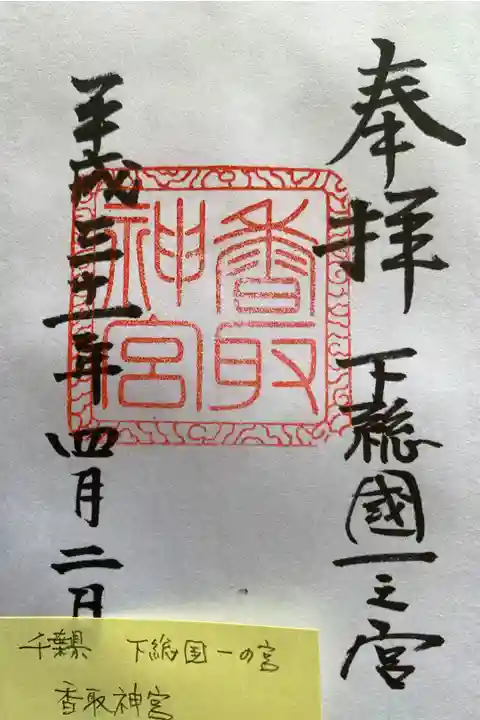 奉拝 下総國一之宮
香取
神宮
平成三十一年四月二日
千葉県 下総国一の宮
香取神宮